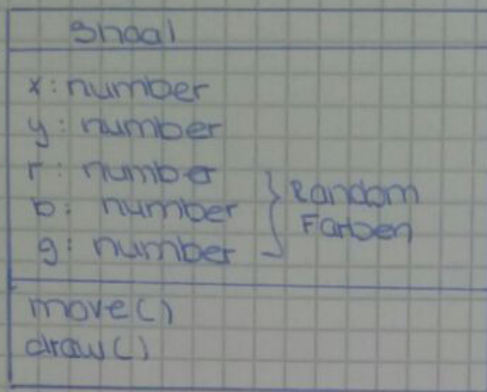 Shoal
x: number
y: number
r: number
b: number
g: number
Random
Farben
move()
draw()